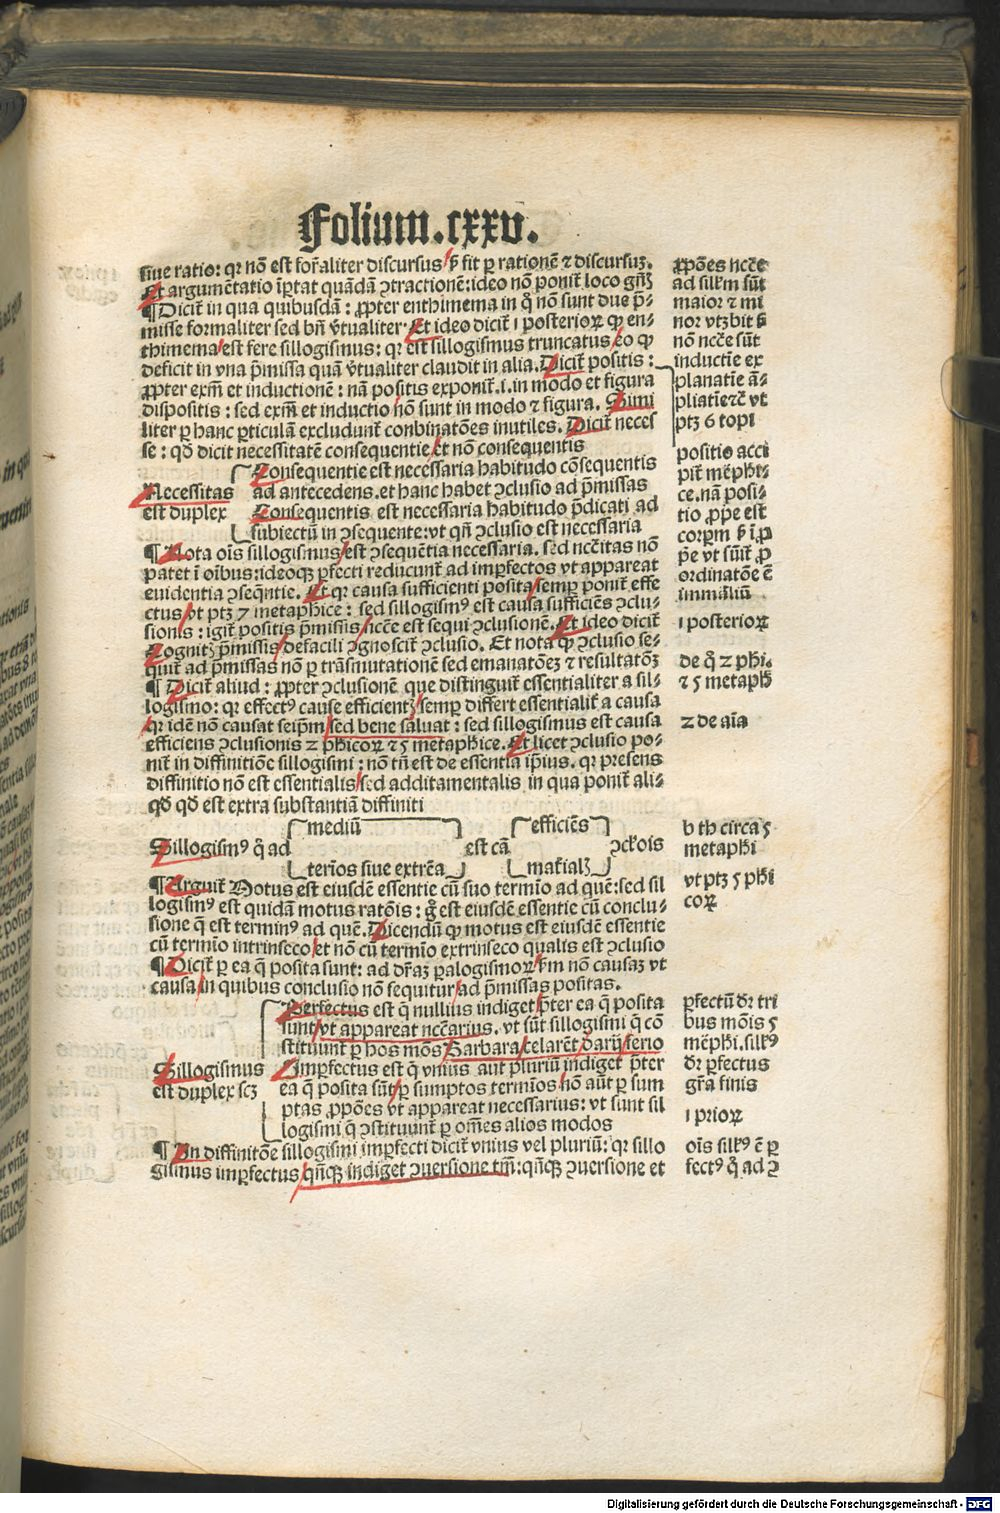 Folium.cxxv.
siue ratio: qꝛ nõ est forãliter discursus ꝫ fit ꝑ rationẽ ⁊ discursuꝫ.
Et argumẽtatio ĩportat quãdã ↄtractionẽ: ideo nõ ponit̃ loco gñis
¶ Dicit̃ in qua quibusdã: ꝓpter enthimema in q̃ nõ sunt due p̃-
misse formaliter sed bñ v̉tualiter. Et ideo dicit̃ ı posterioꝝ ꝙ en-
thimema est fere sillogismus: qꝛ est sillogismus truncatus eo ꝙ
deficit in vna p̃missa quã v̉tualiter claudit in alia. Dicit̃ positis:
ꝓpter exm̃ et inductionẽ: nã positis exponit̃.i. in modo et figura
dispositis: sed exm̃ et inductio nõ sunt in modo ⁊ figura. Simi
liter ꝑ hanc ꝑticulã excludunt̃ conbinatões inutiles. Dicit̃ neces
se: qð dicit necessitatẽ consequentie et nõ consequentis
Necessitas
est duplex
Consequentie est necessaria habitudo cõsequentis
ad antecedens. et hanc habet ↄclusio ad p̃missas
Consequentis est necessaria habitudo p̃dicati ad
subiectũ in ↄsequente: vt qñ ↄclusio est necessaria
¶ Nota oĩs sillogismus est ↄsequẽtia necessaria. sed ncc̃itas nõ
patet ĩ oĩbus: ideoqꝫ ꝑfecti reducunt̃ ad imꝑfectos vt appareat
euidentia ↄseq̃ntie. Et qꝛ causa sufficienti posita semꝑ ponit̃ effe
ctus vt ptꝫ 7 metaph̃ice: sed sillogismꝰ est causa sufficiẽs ↄclu-
sionis: igit̃ positis p̃missis ncc̃e est sequi ↄclusionẽ. Et ideo dicit̃
Cognitꝭ p̃missis defacili ↄgnoscit̃ ↄclusio. Et nota ꝙ ↄclusio se-
quit̃ ad p̃missas nõ ꝑ trãsmutationẽ sed emanatõeꝫ ⁊ resultatõꝫ
¶ Dicit̃ aliud: ꝓpter ↄclusionẽ que distinguit̃ essentialiter a sil-
logismo: qꝛ effectꝰ cause efficientꝭ semꝑ differt essentialit̃ a causa
qꝛ idẽ nõ causat seip̃m sed bene saluat: sed sillogismus est causa
efficiens ↄclusionis 2 ph̃icoꝝ ⁊ 5 metaph̃ice. Et licet ↄclusio po-
nit̃ in diffinitiõe sillogismi: nõ tñ est de essentia ip̃ius. qꝛ presens
diffinitio nõ est essentialis sed additamentalis in qua ponit̃ ali-
qð qð est extra substantiã diffiniti
Sillogismꝰ q̊ ad
mediũ
terĩos siue extrẽa
est cã
efficiẽs
mat̃ialꝭ
ↄcl̃ois
¶ Arguit̃ Motus est eiusdẽ essentie cũ suo termĩo ad quẽ: sed sil
logismꝰ est quidã motus ratõis: g̊ est eiusdẽ essentie cũ conclu-
sione q̃ est terminꝰ ad quẽ. Dicendũ ꝙ motus est eiusdẽ essentie
cũ termĩo intrinseco et nõ cũ termĩo extrinseco qualis est ↄclusio
¶ Dicit̃ ꝑ ea q̃ posita sunt: ad dr̃aꝫ ꝑalogismoꝝ ẜm nõ causaꝫ vt
causa in quibus conclusio nõ sequitur ad p̃missas positas.
Sillogismus
est duplex scꝫ
Perfectus est q̃ nullius indiget p̃ter ea q̃ posita
sunt vt appareat ncc̃arius. vt sũt sillogismi q̃ cõ
stituunt̃ ꝑ hos mõs Barbara celarẽt darij ferio
Imꝑfectus est q̃ vnius aut pluriũ indiget p̃ter
ea q̃ posita sũt ꝑ sumptos termĩos nõ aũt ꝑ sum
ptas ꝓpões vt appareat necessarius: vt sunt sil
logismi q̃ ↄstituunt̃ ꝑ om̃es alios modos
¶ In diffinitõe sillogismi imꝑfecti dicit̃ vnius vel pluriũ: qꝛ sillo
gismus imꝑfectus qñqꝫ indiget ↄuersione tm̃: qñqꝫ ↄuersione et
ꝓpões ncc̃e
ad sill̃m sũt
maior ⁊ mi
nor vtꝫ bit̃ ẜ
nõ ncc̃e sũt
inductiẽ ex
planatiẽ ã-
pliatiẽ etc̃ vt
ptꝫ 6 topi
positio acci
pit̃ mẽph̃i-
ce. nã posi-
tio ꝓp̃e est
corꝑm ẜ ĩ ꝓ
p̃e vt sũit̃ ꝓ
ordinatõe ẽ
immãliũ
ı posterioꝝ
de q̊ 2 ph̃i.
⁊ 5 metaph̃
2 de aĩa
h th̃ circa 5
metaph̃i
vt ptꝫ 5 ph̃i
coꝝ
ꝑfectũ dr̃ tri
bus mõis 5
mẽph̃i. sill̃ꝰ
dr̃ ꝑfectus
gr̃a finis
ı prioꝝ
oĩs sill̃ꝰ ẽ ꝑ
fectꝰ q̊ ad ↄ
Digitalisierung gefördert durch die Deutsche Forschungsgemeinschaft - DFG